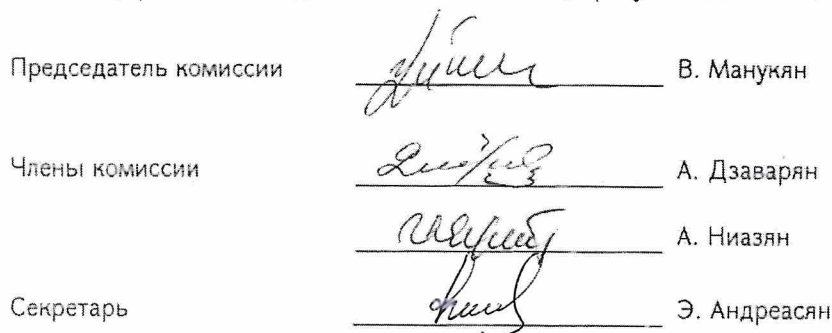 Председатель комиссии В. Манукян
Члены комиссии А. Дзаварян
А. Ниазян
Секретарь Э. Андреасян